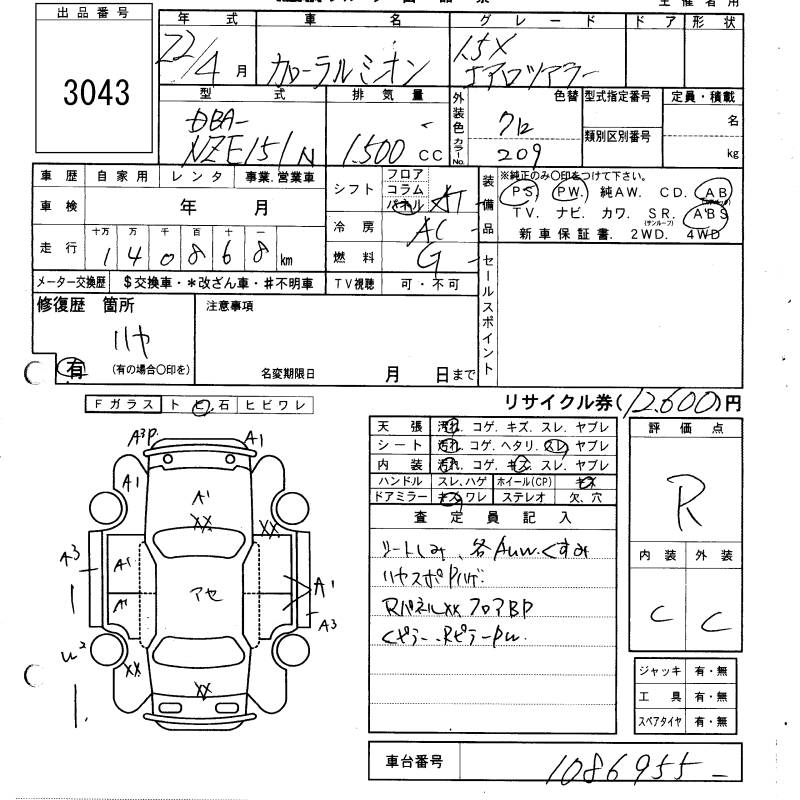 主催者用
出品番号
3043
年 式 車 名 グレード ドア 形 状
22/4 月 カローラルミオン 1.5X
エアロツアラー
型 式 排 気 量 外装色 カラーNo. 色替 型式指定番号 定員・積載
DBA- クロ 名
NZE151N 1.500 cc 209 類別区別番号 kg
車 歴 自家用 レンタ 事業.営業車 シフト フロア コラム パネル AT
装備品 ※純正のみ〇印をつけて下さい。
PS. PW. 純AW. CD. AB
車検 年 月
TV. ナビ. カワ. SR. ABS
(サンルーフ)
冷 房 AC 新車保証書. 2WD. 4WD
走 行 十万 万 千 百 十
1 4 0 8 6 8 km
燃 料 G
メーター交換歴 $交換車・*改ざん車・#不明車 TV視聴 可・不可
セールスポイント
修復歴 箇所 注意事項
ハヤ
有 (有の場合〇印を) 名変期限日 月 日まで
リサイクル券(12.600)円
Fガラス ト ビ 石 ヒビワレ
天 張 汚れ. コゲ. キズ. スレ. ヤブレ
シート 汚れ. コゲ. ヘタリ. スレ. ヤブレ
内 装 汚れ. コゲ. キズ. スレ. ヤブレ
ハンドル スレ.ハゲ ホイール(CP) キズ
ドアミラー キズ.ワレ ステレオ 欠.穴
評 価 点
R
内 装 外 装
C C
査 定 員 記 入
シートしみ、各AUW.くすみ
ハヤスポPハゲ.
RパネルXX フロアBP
Cピラー、RピラーPW.
A3P. A1
A1
A1
XX XX
A3 A1
アセ A1
A1 A3
U2
XX XX
ジャッキ 有・無
工 具 有・無
スペアタイヤ 有・無
車台番号 1086955